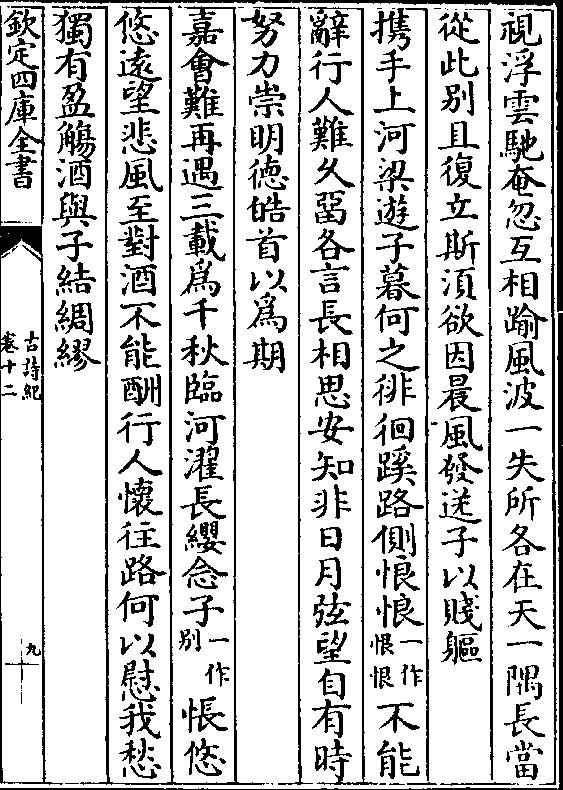 視浮雲馳奄忽互相踰風波一失所各在天一隅長當
從此别且復立斯湏欲因晨風發送子以賤軀
携手上河梁遊子暮何之徘徊蹊路側悢悢一作恨恨不能
辭行人難久畱各言長相思安知非日月弦望自有時
努力崇明德皓首以為期
嘉會難再遇三載為千秋臨河濯長纓念子一作别悵悠
悠遠望悲風至對酒不能酬行人懷往路何以慰我愁
獨有盈觴酒與子結綢繆
欽定四庫全書
古詩紀
卷十二
九